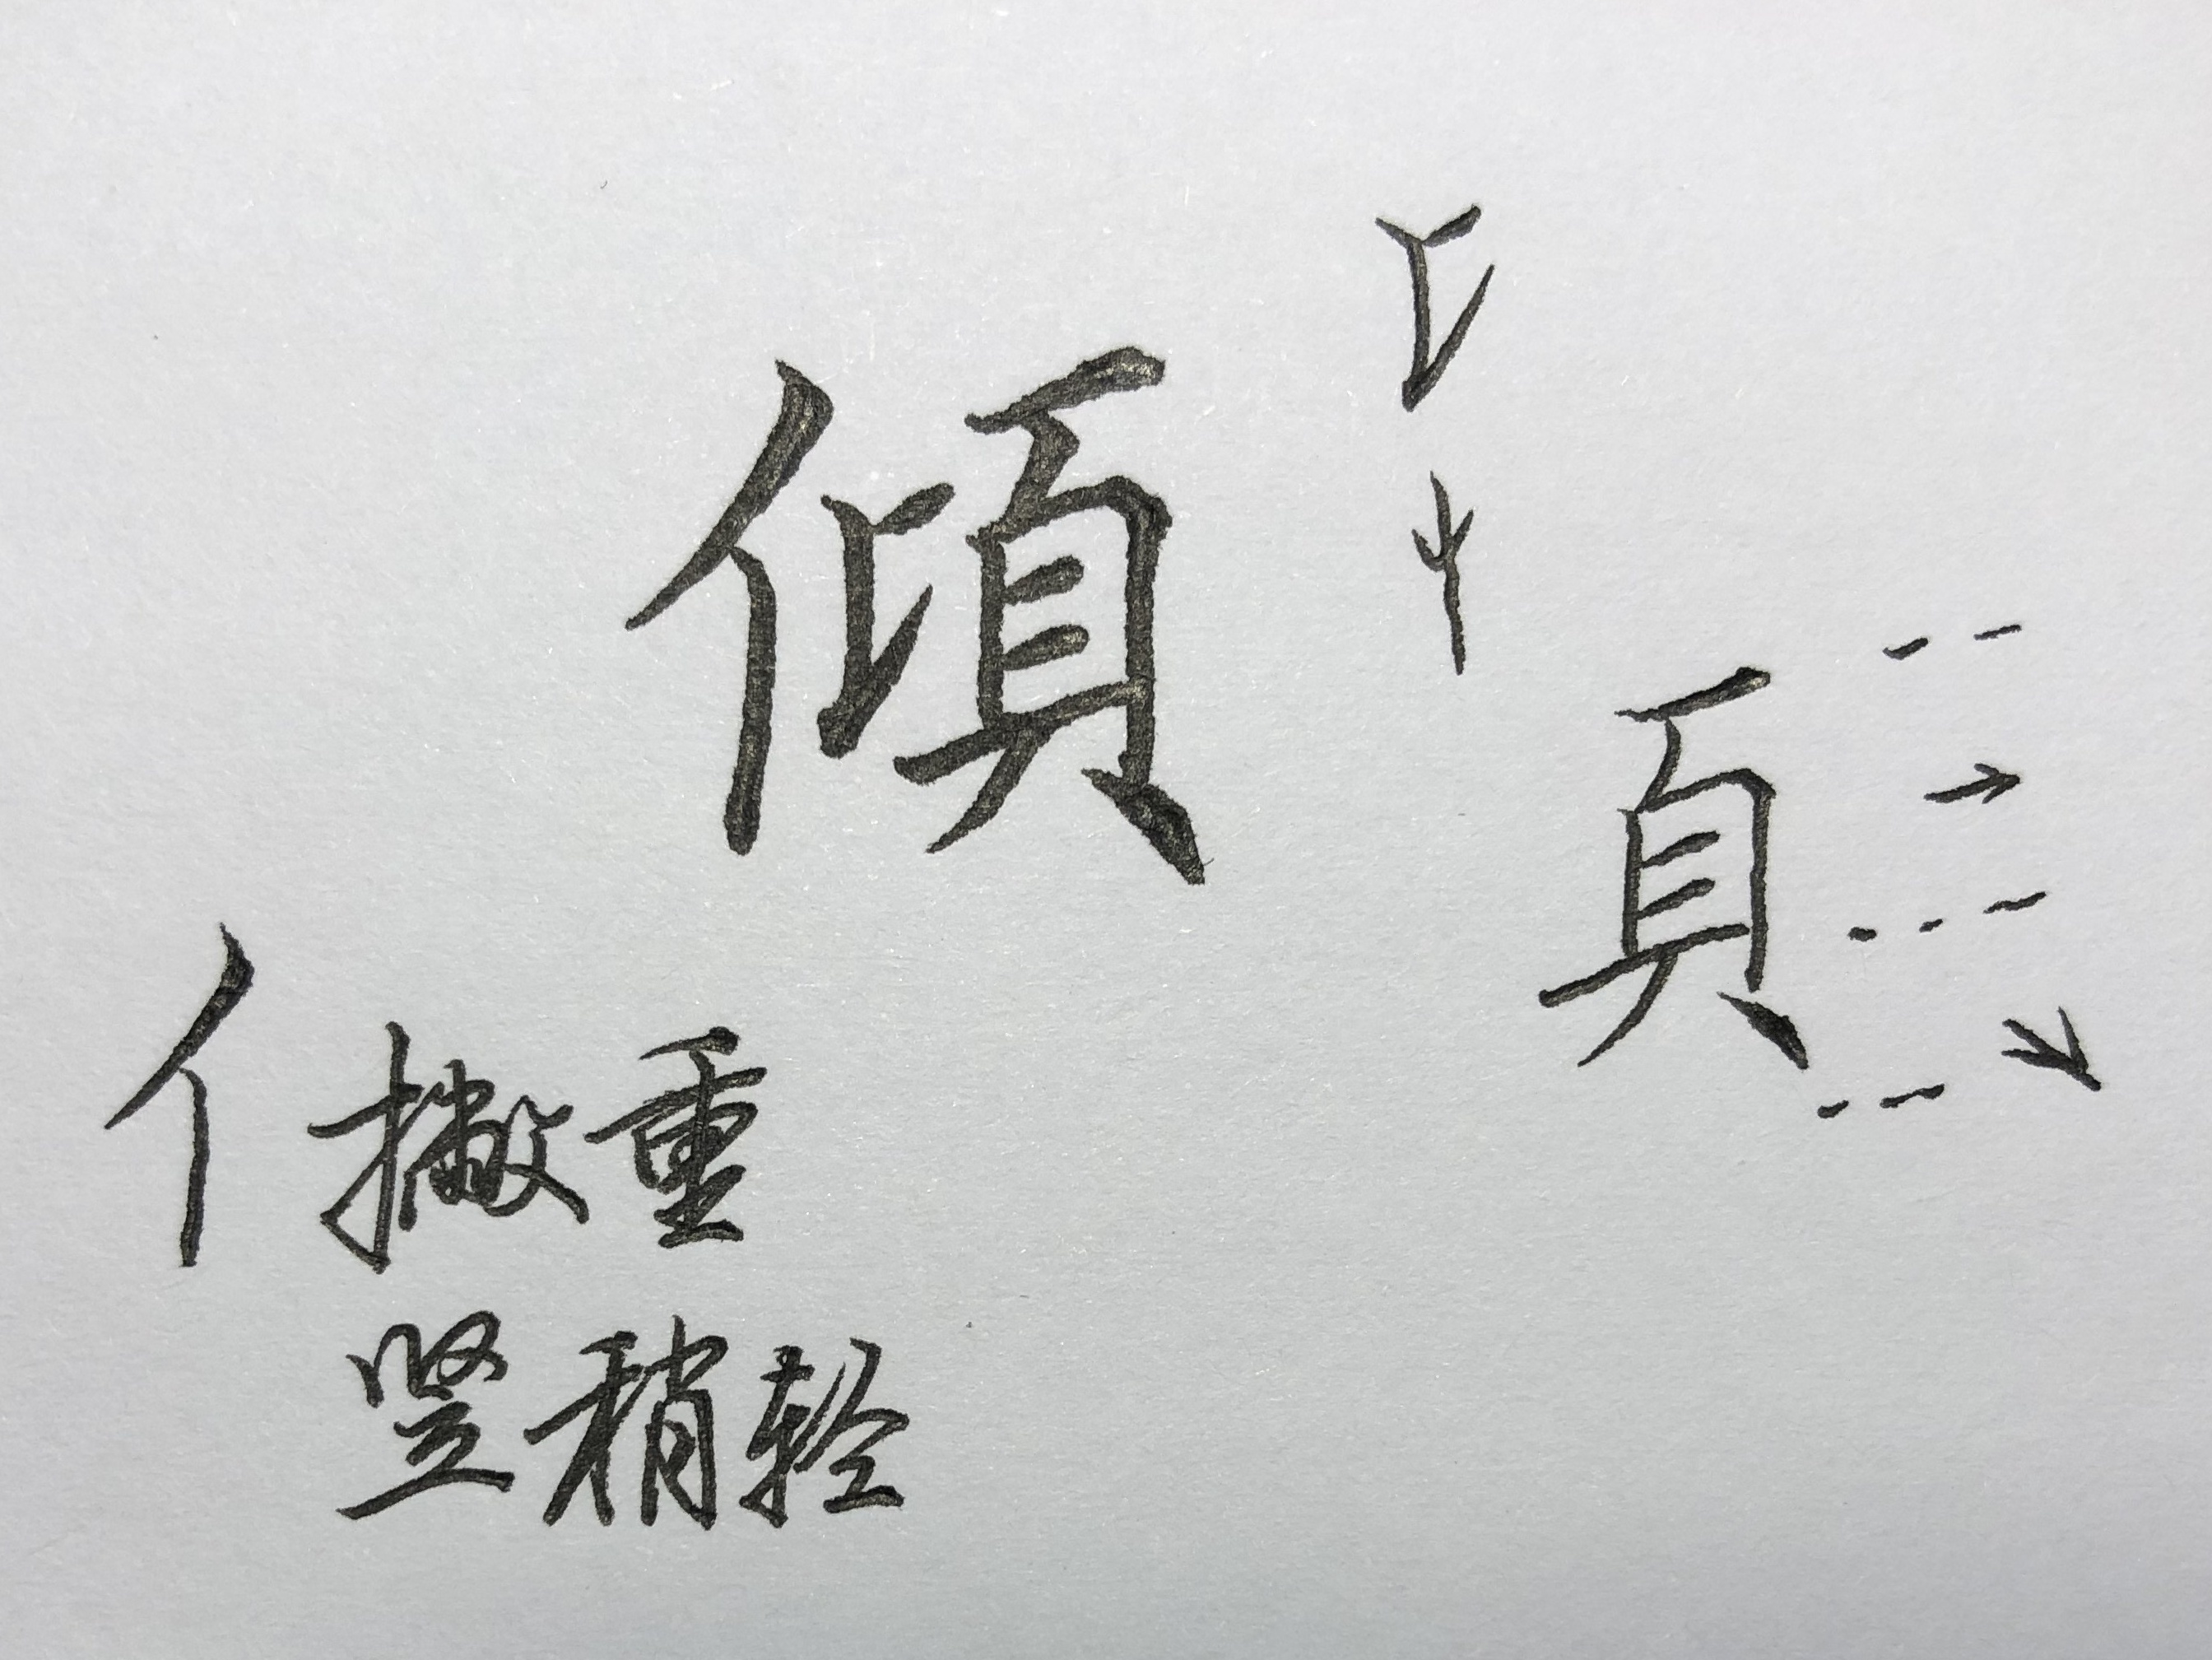 傾
匕
頁
亻撇重
竖稍轻